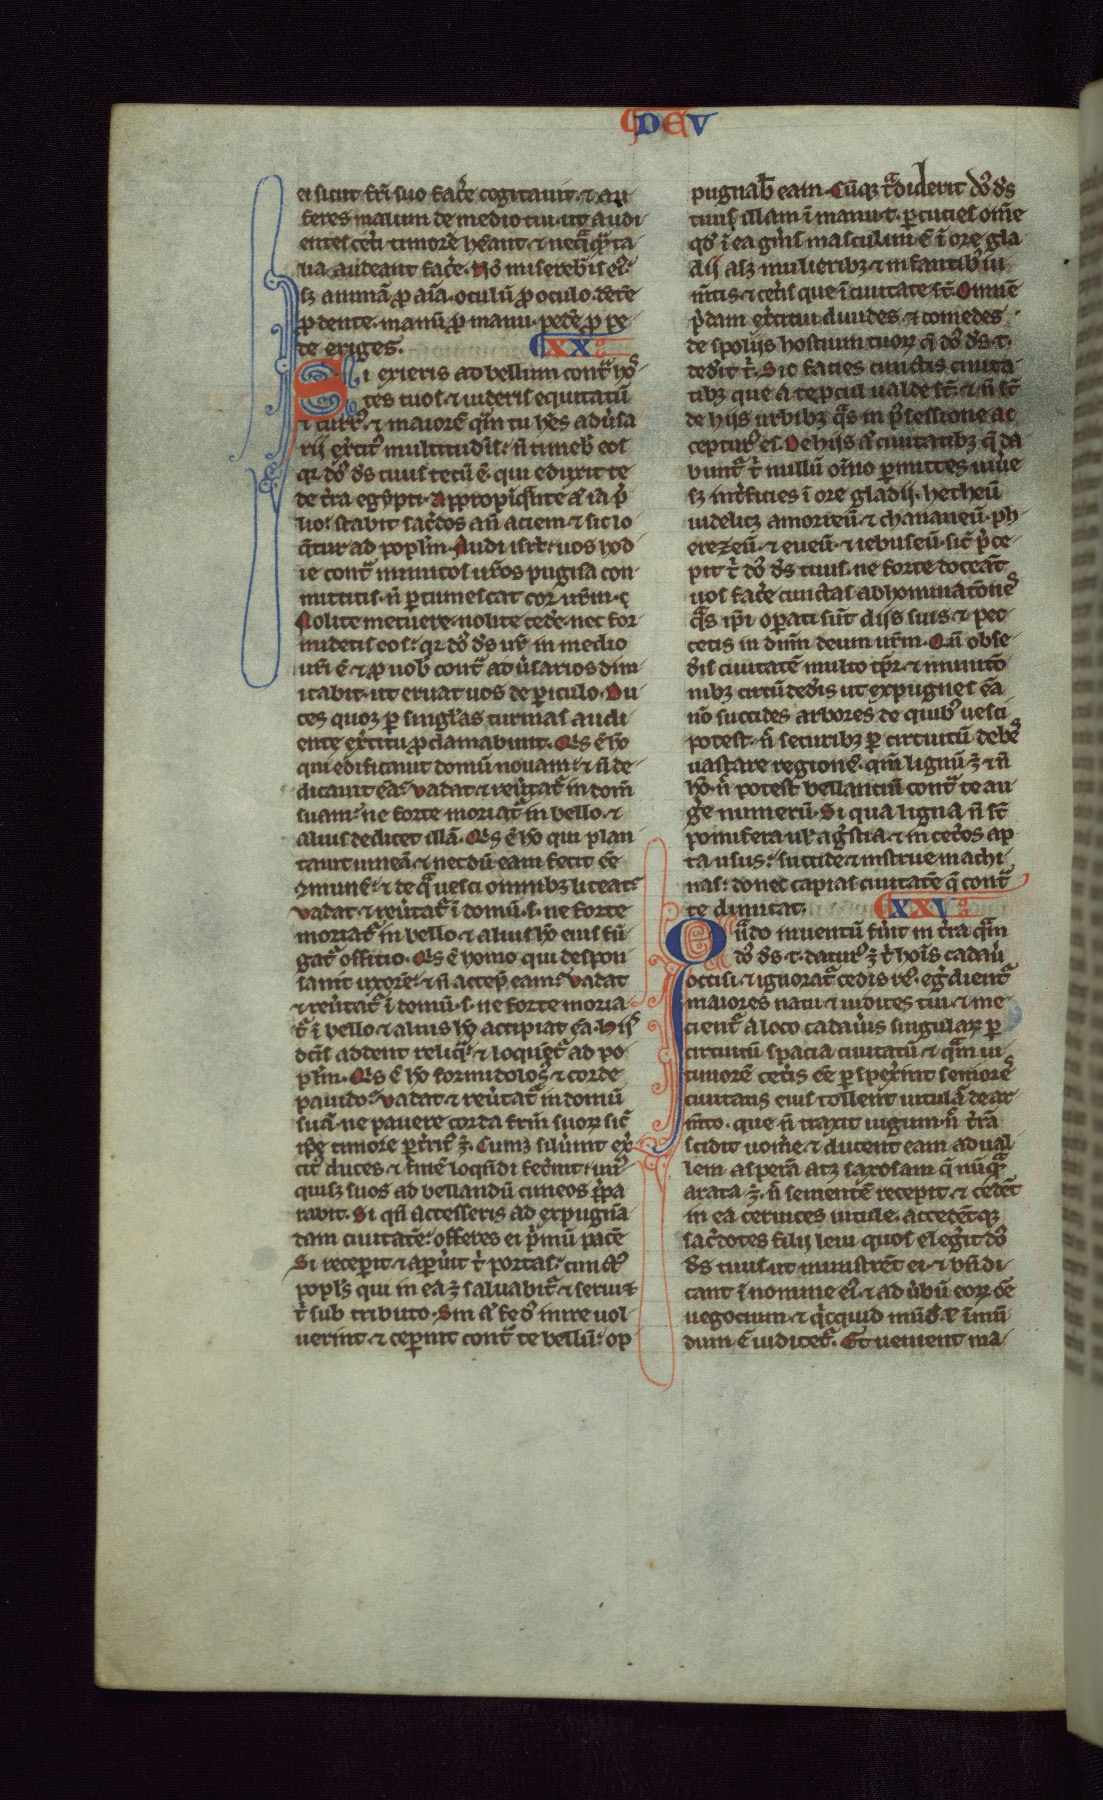 DEV
ei sicut fr̄i suo fac̄e cogitauit. ⁊ au
feres malum de medio tui. ut audi
entes cet̄i timorē hēant. ⁊ neq̄ꝗ̄ ta
lia audeant fac̄e. Nō misereb̄is eiꝰ.
sꝫ animā ꝓ aīa. oculū ꝓ oculo. dētē
ꝓ dente. manū ꝓ manu. pedē ꝓ pe
de exiges. XX
Si exieris ad bellum contᷓ hoˢ
tes tuos. ⁊ uideris equitatū
⁊ currꝰ. ⁊ maiorē q̄m tu hēs aduˀsa
rii exˀcitꝰ multitudīs. n̄ timeb̄ eos
qr dn̄s ds̄ tuus tecū ē. qui eduxit te
de tˀra egypti. Appropīq̄nte aū iā p̄
lio: stabit sacˀdos an̄ aciem. ⁊ sic lo
q̄tur ad popl̄m. Audi isrl̄. uos hod
ie contᷓ inimicos ur̄os pugnā con
mittitis. n̄ ꝑtimescat cor ur̄m.
Nolite metuere. nolite cedˀe. nec for
midetis eos: qr dn̄s ds̄ ur̄ in medio
ur̄i ē. ⁊ ꝓ uob̄ contᷓ aduˀsarios dim
icabit. ut eruat uos de ꝑiculo. Du
ces quoqꝫ ꝑ singl̄as turmas audi
ente exˀcitu ꝓclamabunt. Q̄s ē hō
qui edificauit domū nouam: ⁊ n̄ de
dicauit eā: uadat ⁊ reuˀtatᷓ in dom̄
suam: ne forte moriatᷓ in bello. ⁊
alius dedicet illā. Q̄s ē hō qui plan
tauit uineā. ⁊ necdū eam fecit eē
ꝯmunē: ⁊ de qᷓ uesci omnibꝫ liceat:
Vadat ⁊ reuˀtatᷓ ī domū .s. ne forte
moriatᷓ in bello. ⁊ alius hō eius fū
gatᷓ officio. Q̄s ē homo qui despon
sauit uxorē. ⁊ n̄ accep̄ eam: uadat
⁊ reuˀtatᷓ ī domū .s. ne forte moria
tᷓ ī bello. ⁊ alius hō accipiat eā. Hiis
dc̄is addent reliqᷓ. ⁊ loquētᷓ ad po
pl̄m. Q̄s ē hō formidolosꝰ. ⁊ corde
pauido: uadat ⁊ reuˀtatᷓ in domū
suā. ne pauere corda frm̄ suorꝫ sic̄
ip̄e timore ꝑtˀritꝰ ē. Cumqꝫ siluˀint exˀ
citꝰ duces. ⁊ finē loq̄ndi fecˀint. un̄ꝰ
quisqꝫ suos ad bellandū cuneos p̄pa
rabit. Si qn̄ accesseris ad expugnā
dam ciuitatē: offeres ei p̄mū pacē
Si receperit ⁊ apˀuit tⁱ portas: cunctꝰ
popl̄s qui in ea ē saluabitᷓ. ⁊ seruiet
tⁱ sub tributo. Sin aū fedꝰ inire nol
uerint. ⁊ ceperint contᷓ te bellū: op
pugnab̄ eam. Cūqꝫ tᷓdiderit dn̄s ds̄
tuus illam ī manu .t. ꝑcuties om̄e
qd̄ ī ea gn̄is masculini ē ī ore gla
dij. absqꝫ mulieribꝫ ⁊ infantibꝰ iu
m̄tis. ⁊ cetˀis que ī ciuitate st̄. Omnē
p̄dam exˀcitui diuides. ⁊ comedes
de spolijs hostium tuorꝫ q̄ dn̄s ds̄ .t.
dedit tⁱ. Sic facies cunctis ciuita
tibꝫ que a te ꝓcul ualde st̄. ⁊ n̄ st̄
de hijs urbibꝫ qᷓs in p̄sessione ac
cepturꝰ es. De hijs aū ciuitatibꝫ q̄ da
buntᷓ tⁱ nullū oīno ꝑmittes uiuˀe
sꝫ intˀficies ī ore gladij. hetheū
uidelicꝫ amorreū. ⁊ chananeū. ph
erezeū. ⁊ eueū. ⁊ iebuseū. sic̄ p̄ce
pit tⁱ dn̄s ds̄ tuus. ne forte doceāt
uos facˀe cunctas abhominatōnes
qᷓs ip̄i oꝑati sūt dijs suis. ⁊ pec
cetis in dn̄m deum ur̄m. Qn̄ obse
dˀis ciuitatē multo tp̄r. ⁊ munitō
nibꝫ circūdedˀis ut expugnes eā
nō succides arbores de quibꝰ uesci
potest. n̄ securibꝫ ꝑ circuitū debes
uastare regionē. qm̄ lignū ē ⁊ n̄
hō. n̄ potest bellantiū contᷓ te au
gˀe numerū. Si qua ligna n̄ st̄
pomifera ul̄ agˀstia. ⁊ in cetˀos ap
ta usus: succide. ⁊ instrue machi
nas: donec capias ciuitatē q̄ contᷓ
te dimicat. XXI
Quādo inuentū fuˀit in tˀra qᷓm
dn̄s ds̄ .t. daturꝰ ē tⁱ hoīs cadauˀ
occisi. ⁊ ignoratᷓ cedis reꝰ. egˀdientᷓ
maiores natu ⁊ iudices tui. ⁊ me
cientᷓ a loco cadauˀis singularꝫ ꝑ
circuitū spacia ciuitatū. ⁊ qᷓm ui
cinorē cetˀis eē ꝑspexˀint seniores
ciuitatis eius tollent uitulā de ar
m̄to. que n̄ traxit iugum. n̄ tˀrā
scidit uomˀe. ⁊ ducent eam ad ual
lem asperā atqꝫ saxosam q̄ nūqᷓ
arata ē. n̄ sementē recepit. ⁊ cedēt
in ea ceruices uitule. accedētqꝫ
sacˀdotes filij leui quos elegˀit dn̄s
ds̄ tuus. ut ministrēt ei. ⁊ bn̄di
cant ī nomine eiꝰ. ⁊ ad uˀbū eorꝫ oē
negocium. ⁊ qⁱcquid mūdū ul̄ īmū
dum ē iudicetᷓ. Et uenient ma